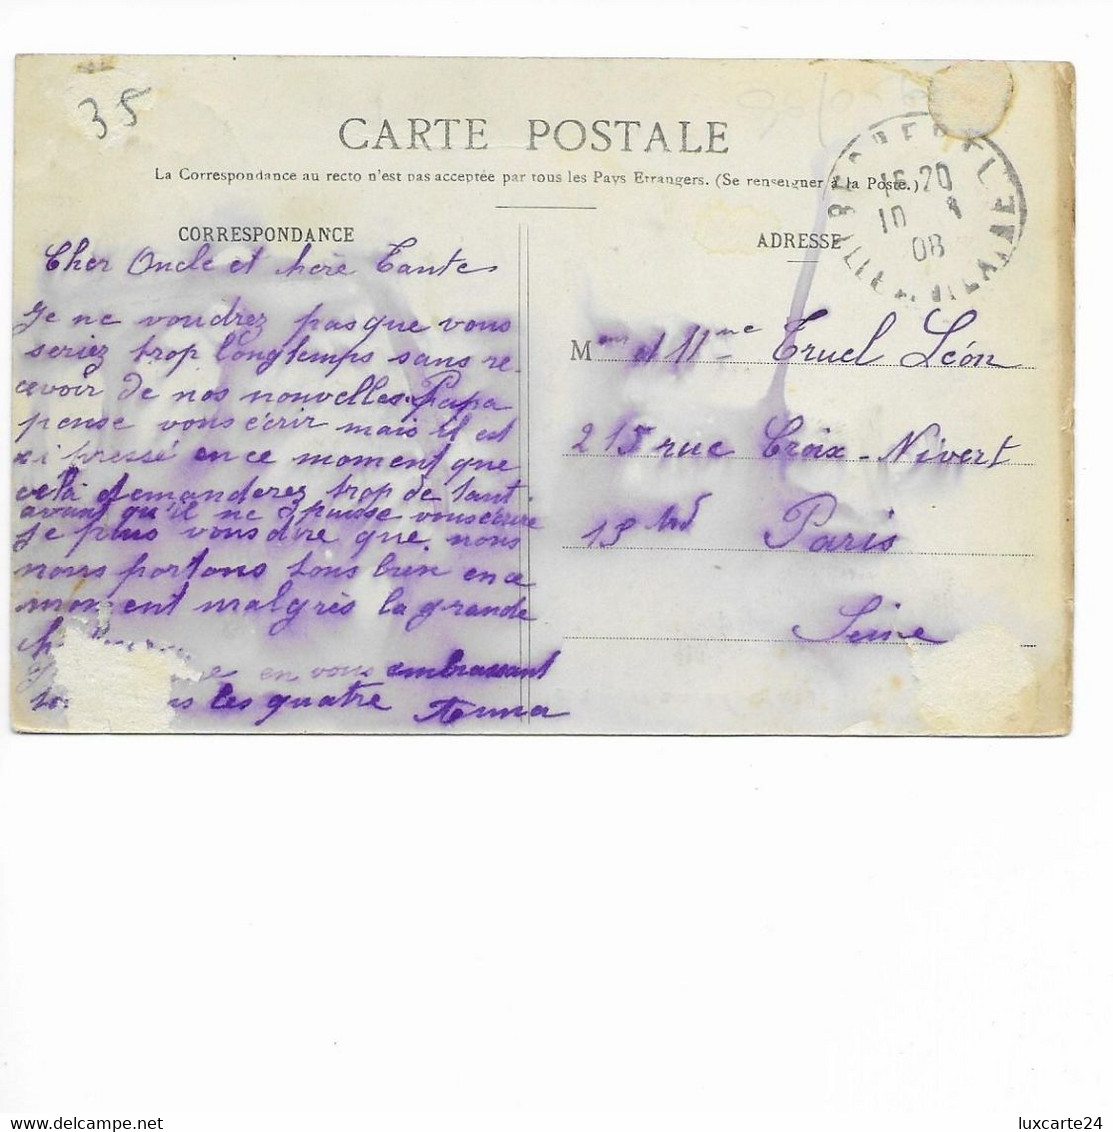 35
CARTE POSTALE
La Correspondance au recto n'est pas acceptée par tous les Pays Etrangers. (Se renseigner à la Poste.)
CORRESPONDANCE
Cher Oncle et chère Tante
Je ne voudrez pas que vous
seriez trop longtemps sans re-
cevoir de nos nouvelles. Papa
pense vous écrir mais il est
si pressé en ce moment que
celà demanderez trop de tant
avant qu'il ne puisse vous écrire
je plus vous dire que nous
nous portons tous bien en ce
moment malgrès la grande
en vous embrassant
les quatre Anna
ADRESSE
15 20
10
08
ILLE VILAINE
Mone et Mme Truel Léon
215 rue Croix-Nivert
15 Paris
Seine
luxcarte24